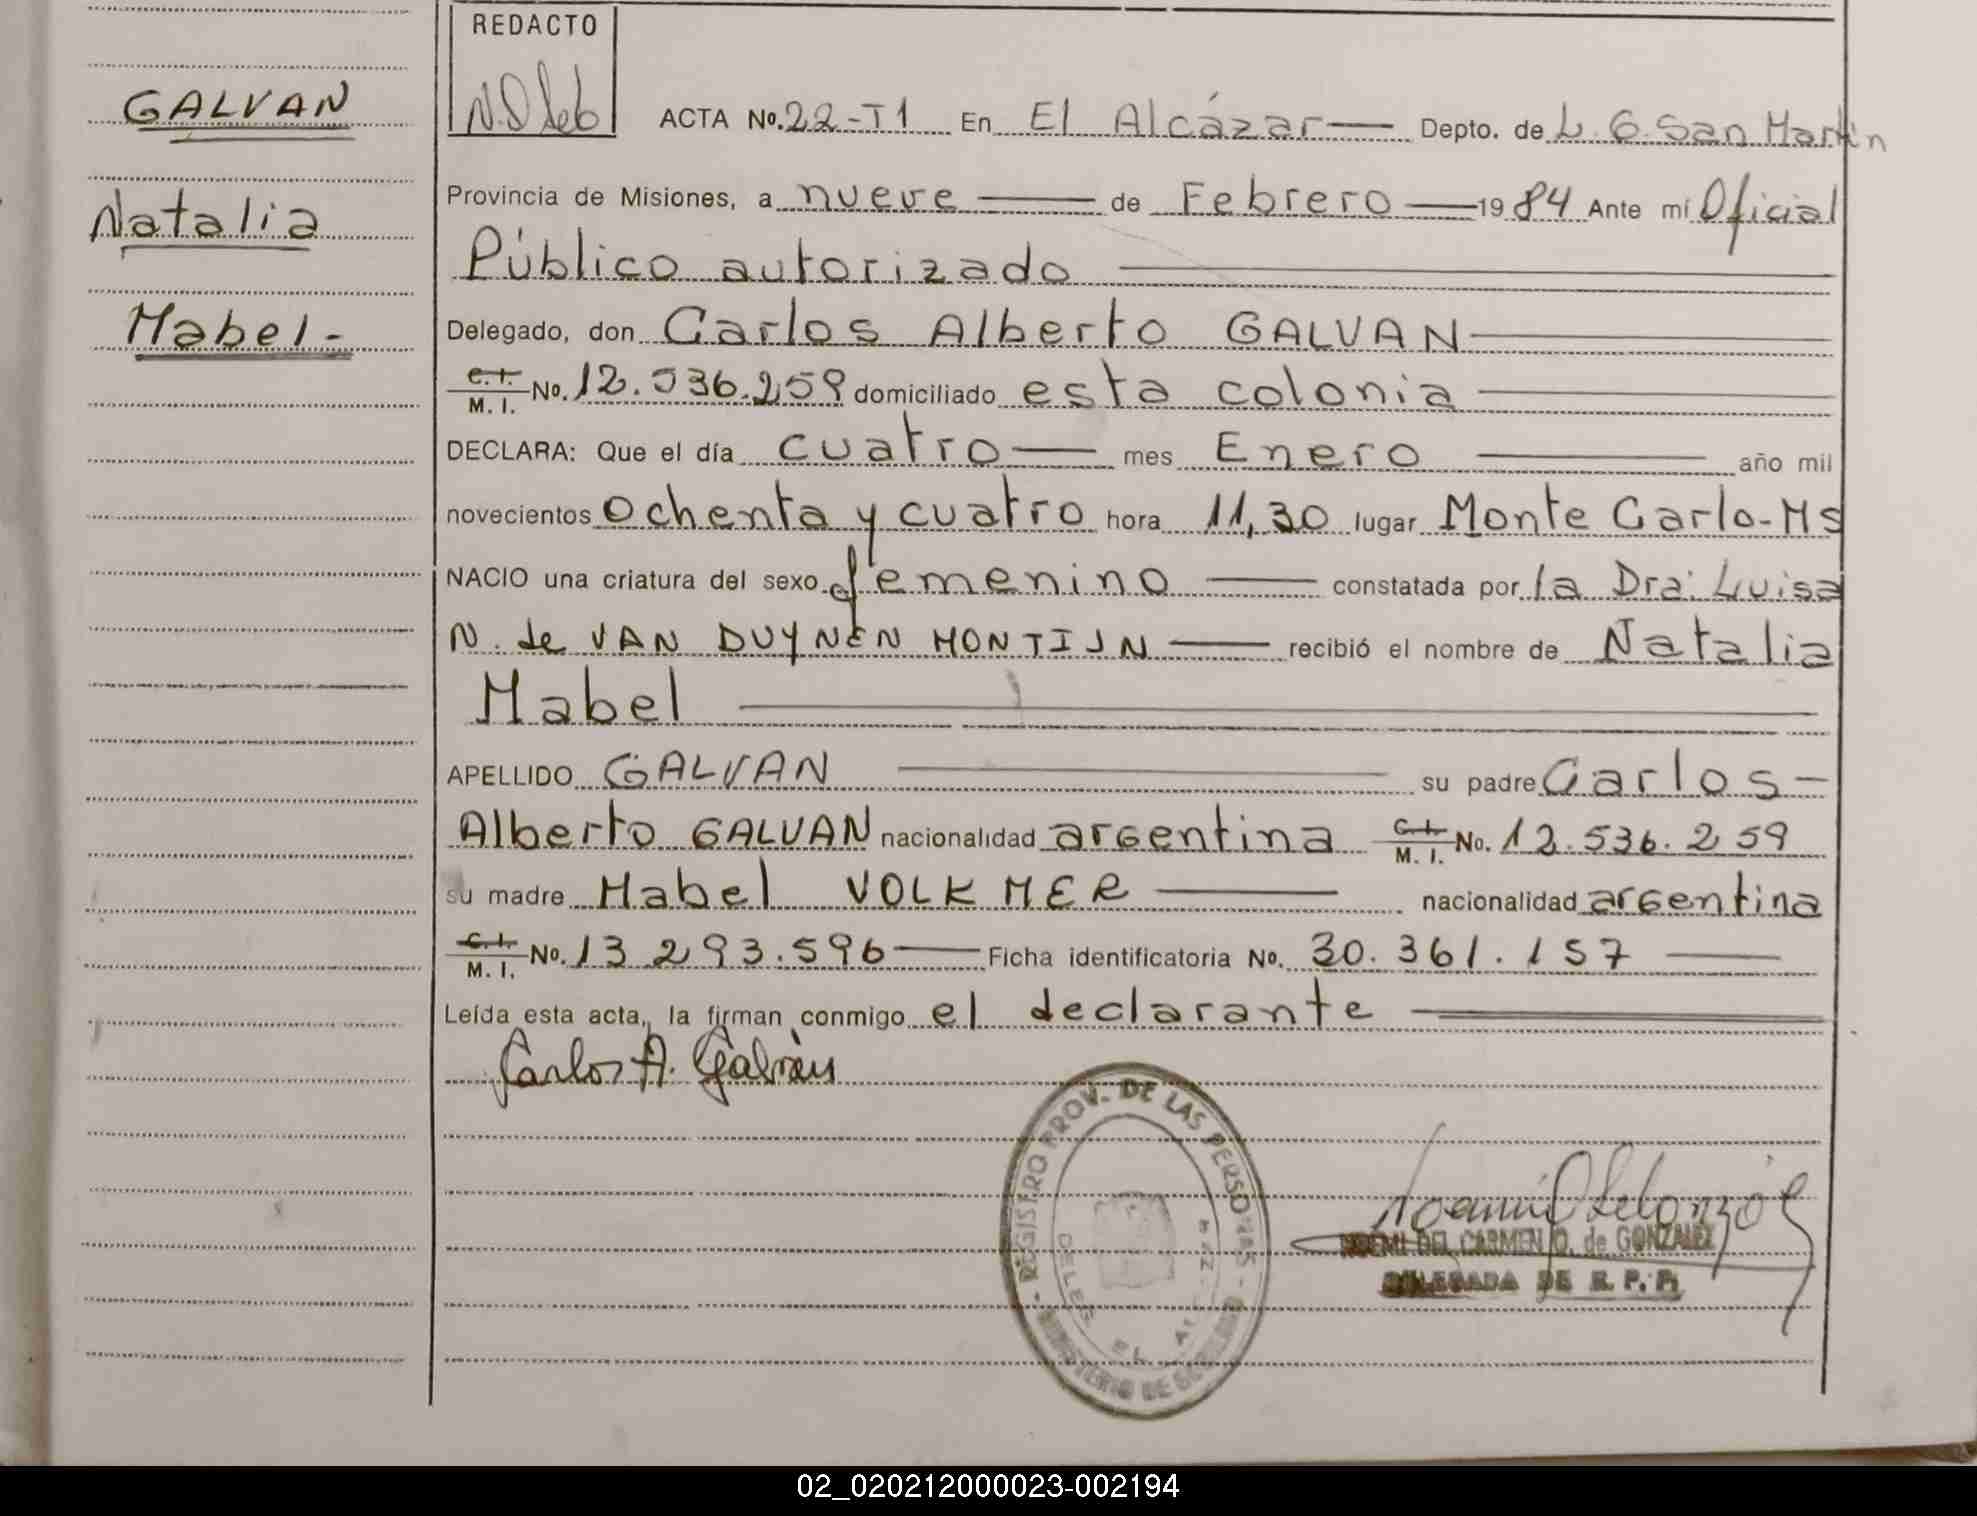 GALVAN
Natalia
Mabel-
REDACTO
ACTA No. 22-T1 En El Alcázar Depto. de L. G. San Martín
Provincia de Misiones, a nueve de Febrero 1984 Ante mí Oficial
Público autorizado
Delegado, don Carlos Alberto GALVAN
C.I. M. I. No. 12.536.259 domiciliado esta colonia
DECLARA: Que el día cuatro mes Enero año mil
novecientos ochenta y cuatro hora 11,30 lugar Monte Carlo-Ms
NACIO una criatura del sexo femenino constatada por la Dra: Luisa
N. de VAN DUYNEN MONTIJN recibió el nombre de Natalia
Mabel
APELLIDO GALVAN su padre Carlos-
Alberto GALVAN nacionalidad argentina C.I. M. I. No. 12.536.259
su madre Mabel VOLKMER nacionalidad argentina
C.I. M. I. No. 13 293.596 Ficha identificatoria No. 30.361.157
Leída esta acta, la firman conmigo el declarante
Carlos A. Galván
REGISTRO PROV. DE LAS PERSONAS - MINISTERIO DE GOBIERNO
NOEMI DEL CARMEN O. de GONZALEZ
DELEGADA DE R. P. P.
02_020212000023-002194